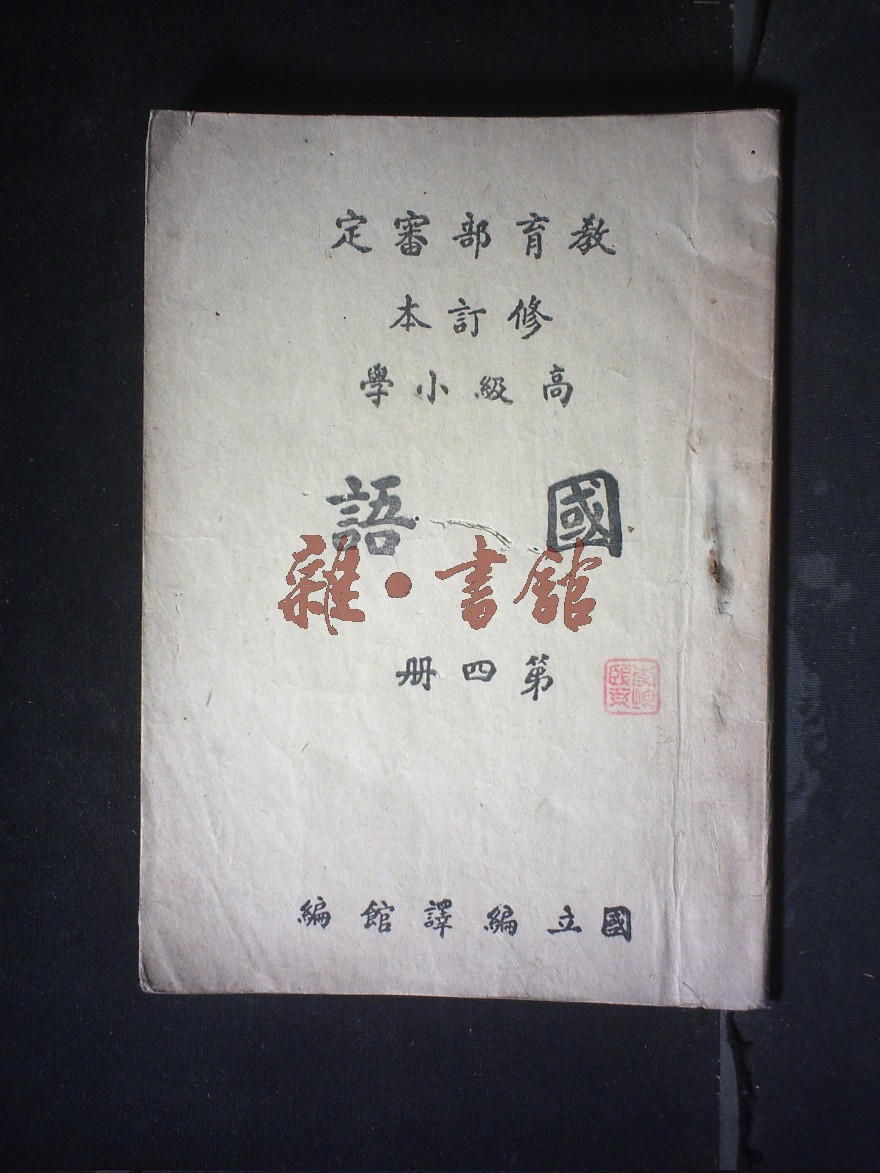 教育部審定
修訂本
高級小學
國語
雜·書館
第四冊
國立編譯館編